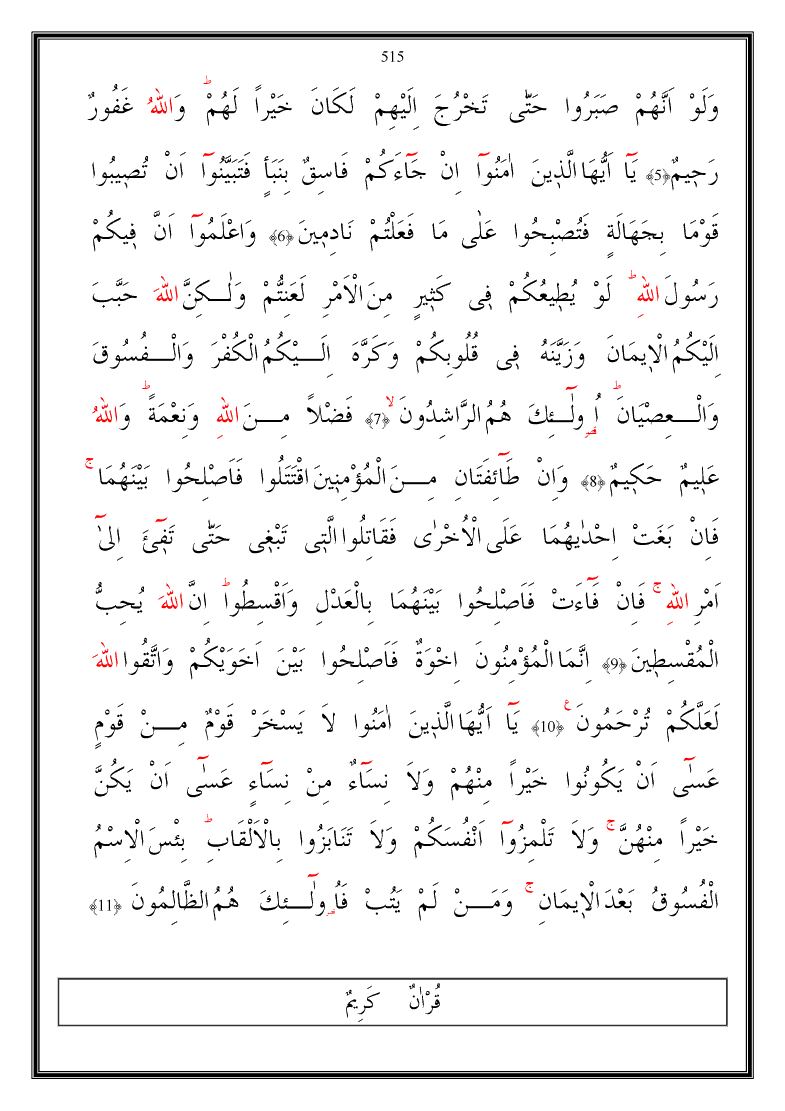 515
وَلَوْ اَنَّهُمْ صَبَرُوا حَتّٰى تَخْرُجَ اِلَيْهِمْ لَكَانَ خَيْراً لَهُمْۜ وَاللّٰهُ غَفُورٌ
رَحٖيمٌ ﴿5﴾ يَٓا اَيُّهَا الَّذٖينَ اٰمَنُٓوا اِنْ جَٓاءَكُمْ فَاسِقٌ بِنَبَأٍ فَتَبَيَّنُٓوا اَنْ تُصٖيبُوا
قَوْمَا بِجَهَالَةٍ فَتُصْبِحُوا عَلٰى مَا فَعَلْتُمْ نَادِمٖينَ ﴿6﴾ وَاعْلَمُٓوا اَنَّ فٖيكُمْ
رَسُولَ اللّٰهِۜ لَوْ يُطٖيعُكُمْ فٖى كَثٖيرٍ مِنَ الْاَمْرِ لَعَنِتُّمْ وَلٰـكِنَّ اللّٰهَ حَبَّبَ
اِلَيْكُمُ الْاٖيمَانَ وَزَيَّنَهُ فٖى قُلُوبِكُمْ وَكَرَّهَ اِلَـيْكُمُ الْكُفْرَ وَالْـفُسُوقَ
وَالْـعِصْيَانَۜ اُولٰٓـئِكَ هُمُ الرَّاشِدُونَۙ ﴿7﴾ فَضْلاً مِـنَ اللّٰهِ وَنِعْمَةًۜ وَاللّٰهُ
عَلٖيمٌ حَكٖيمٌ ﴿8﴾ وَاِنْ طَٓائِفَتَانِ مِـنَ الْمُؤْمِنٖينَ اقْتَتَلُوا فَاَصْلِحُوا بَيْنَهُمَاۚ
فَاِنْ بَغَتْ اِحْدٰيهُمَا عَلَى الْاُخْرٰى فَقَاتِلُوا الَّتٖى تَبْغٖى حَتّٰى تَفٖٓئَ اِلٰٓى
اَمْرِ اللّٰهِۚ فَاِنْ فَٓاءَتْ فَاَصْلِحُوا بَيْنَهُمَا بِالْعَدْلِ وَاَقْسِطُواۜ اِنَّ اللّٰهَ يُحِبُّ
الْمُقْسِطٖينَ ﴿9﴾ اِنَّمَا الْمُؤْمِنُونَ اِخْوَةٌ فَاَصْلِحُوا بَيْنَ اَخَوَيْكُمْ وَاتَّقُوا اللّٰهَ
لَعَلَّكُمْ تُرْحَمُونَ ﴿10﴾ يَٓا اَيُّهَا الَّذٖينَ اٰمَنُوا لاَ يَسْخَرْ قَوْمٌ مِـنْ قَوْمٍ
عَسٰٓى اَنْ يَكُونُوا خَيْراً مِنْهُمْ وَلاَ نِسَٓاءٌ مِنْ نِسَٓاءٍ عَسٰٓى اَنْ يَكُنَّ
خَيْراً مِنْهُنَّۚ وَلاَ تَلْمِزُٓوا اَنْفُسَكُمْ وَلاَ تَنَابَزُوا بِالْاَلْقَابِۜ بِئْسَ الْاِسْمُ
الْفُسُوقُ بَعْدَ الْاٖيمَانِۚ وَمَـنْ لَمْ يَتُبْ فَاُولٰٓـئِكَ هُمُ الظَّالِمُونَ ﴿11﴾
قُرْاٰنٌ كَرٖيمٌ